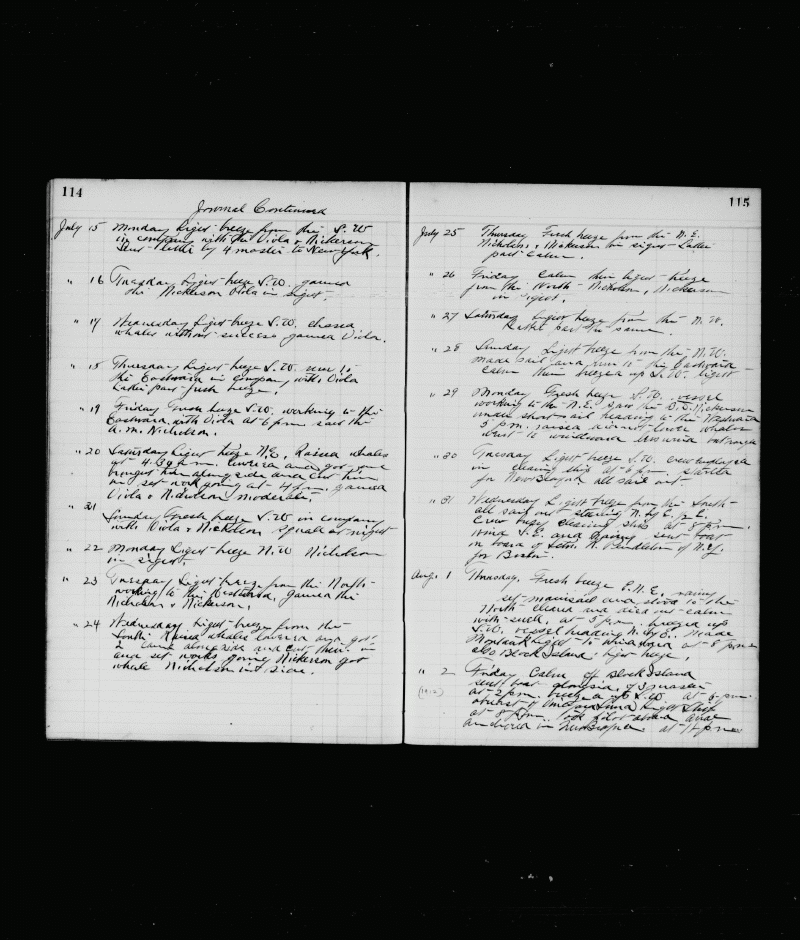 114
Journal Continued
July 15 Monday Light breeze from the S.W
in company with the Viola & Nickerson
Sent letter by 4 master to New York.
" 16 Tuesday Light breeze S.W. gamed
the Nickerson Viola in sight.
" 17 Wednesday Light breeze S.W. chased
whales without success gamed Viola.
" 18 Thursday Light breeze S.W. run to
the Eastward in Company with Viola
Latter part fresh breeze.
" 19 Friday Fresh breeze S.W. working to the
Eastward with Viola at 6 p.m. saw the
A.M. Nicholson.
" 20 Saturday Light breeze N.E. Raised whales
at 4.30 a.m. lowered and got one
brought him alongside and cut him
in, set work going at 4 p.m. gamed
Viola & Nicholson moderate.
" 21 Sunday Fresh breeze S.W in company
with Viola & Nickerson Squalls at night
" 22 Monday Light breeze N.W Nicholson
in sight.
" 23 Tuesday Light breeze from the North
working to the Eastward, gamed the
Nicholson & Nickerson.
" 24 Wednesday Light breeze from the
South Raised whales lowered and got
2 came alongside and cut them in
and set works going Nickerson got
whale Nicholson in sight.
115
July 25 Thursday Fresh breeze from the N.E.
Nicholson & Nickerson in sight Latter
part calm.
" 26 Friday Calm then light breeze
from the North Nicholson, Nickerson
in sight.
" 27 Saturday Light breeze from the N.W.
Latter part the same.
" 28 Sunday Light breeze from the N.W.
made sail and run to the Eastward
Calm then breezed up S.W. light
" 29 Monday Fresh breeze S.W. vessel
working to the N.E. saw the Nickerson
under short sail heading to the Westward
5 p.m. raised whales
went to windward
" 30 Tuesday Light breeze S.W. crew employed
in cleaning ship at 6 p.m. started
for New Bedford all sail out.
" 31 Wednesday Light breeze from the South
all sail out steering N. by E ½ E.
Crew busy cleaning ship at 8 p.m.
Wind S.E. and sent boat
on board of Schr. Pendleton of N.Y.
for Boston.
Aug. 1 Thursday. Fresh breeze E.N.E. rainy
set mainsail and stood to the
North cleared and died out calm
with swell. at 5 p.m. breezed up
S.W. vessel heading N. by E. made
Montauk light to windward at 8 p.m.
also Block Island light breeze.
" 2 Friday Calm off Block Island
sent boat of 3 master
at 2 p.m. breezed up S.W at 6 p.m.
abreast of Light Ship
at 8 p.m. took pilot aboard and
anchored in New Bedford at 11 p.m.